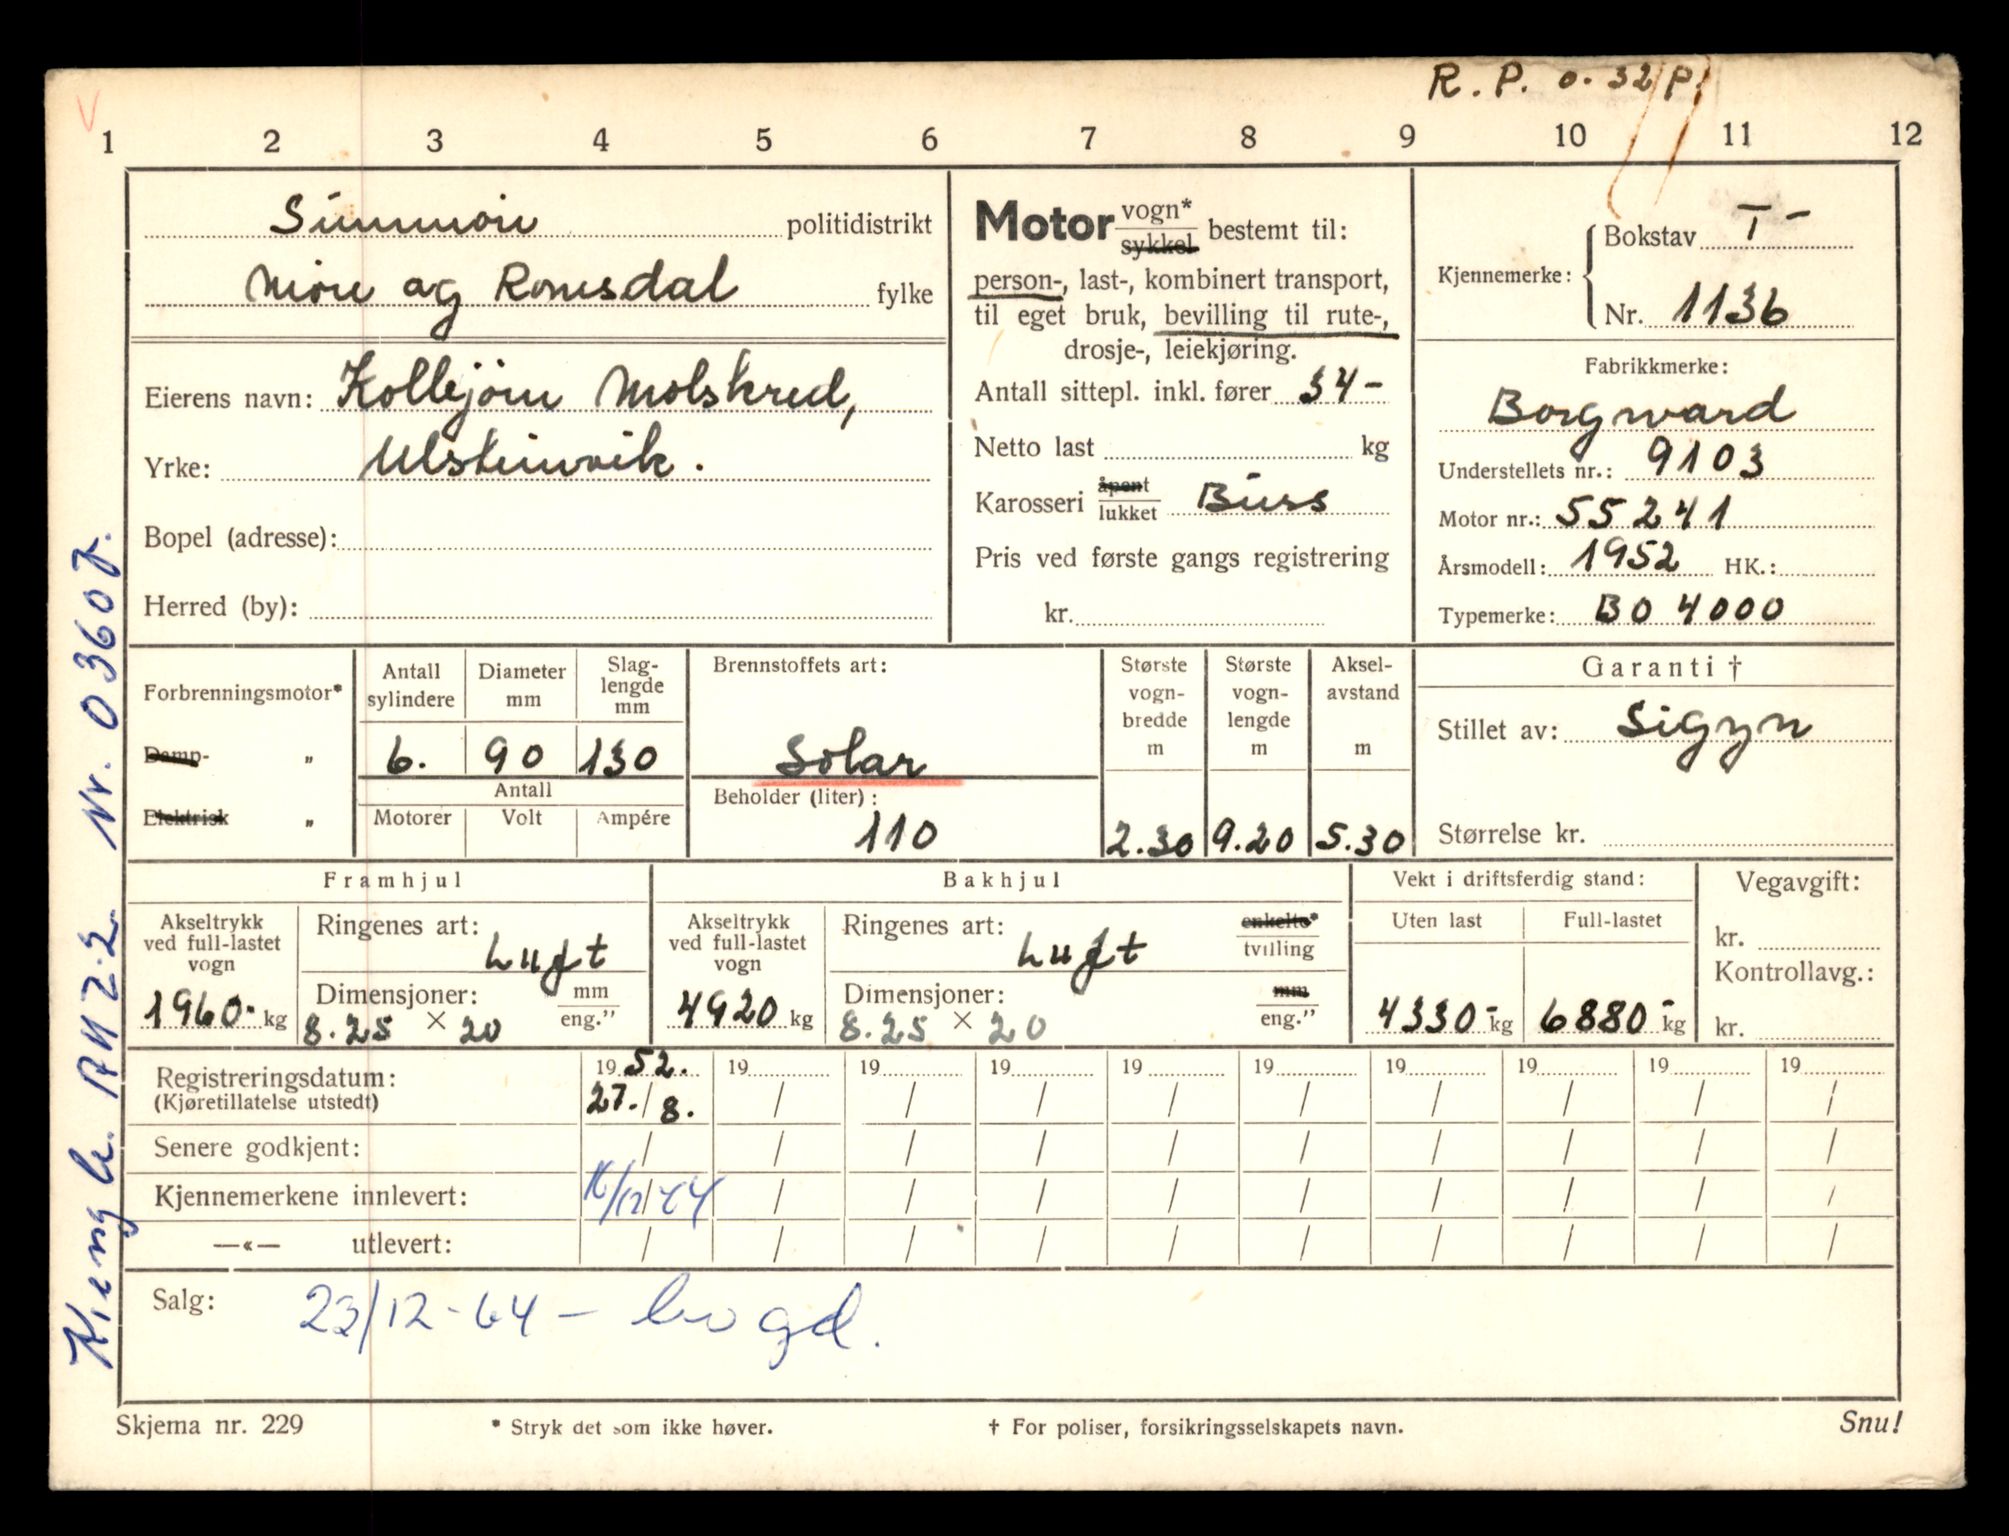 R. P. 0.32 P.
V
1 2 3 4 5 6 7 8 9 10 11 12
Sunnmøre politidistrikt
Møre og Romsdal fylke
Eierens navn: Kolbjørn Molskred,
Yrke: Ulsteinvik.
Bopel (adresse):
Herred (by):
Motor vogn* sykkel bestemt til:
person-, last-, kombinert transport,
til eget bruk, bevilling til rute-,
drosje-, leiekjøring.
Antall sittepl. inkl. fører 34-
Netto last kg
Karosseri åpent lukket Buss
Pris ved første gangs registrering
kr.
Kjennemerke: Bokstav T-
Nr. 1136
Fabrikkmerke:
Borgward
Understellets nr.: 9103
Motor nr.: 55241
Årsmodell: 1952 HK.:
Typemerke: BO 4000
Forbrenningsmotor*
Damp- "
Elektrisk "
Antall sylindere
6.
Diameter mm
90
Slag-lengde mm
130
Antall
Motorer Volt Ampére
Brennstoffets art:
Solar
Beholder (liter):
110
Største vogn-bredde m
2.30
Største vogn-lengde m
9.20
Aksel-avstand m
5.30
Garanti †
Stillet av: Sigyn
Størrelse kr.
Framhjul
Akseltrykk ved full-lastet vogn
1960- kg
Ringenes art:
Luft
Dimensjoner: mm eng."
8.25 × 20
Bakhjul
Akseltrykk ved full-lastet vogn
4920 kg
Ringenes art: enkelte* tvilling
Luft
Dimensjoner: mm eng."
8.25 × 20
Vekt i driftsferdig stand:
Uten last Full-lastet
4330- kg 6880- kg
Vegavgift:
kr.
Kontrollavg.:
kr.
Registreringsdatum: 19 52. 19 19 19 19 19 19 19 19 19
(Kjøretillatelse utstedt) 27./8. / / / / / / / / /
Senere godkjent: / / / / / / / / / /
Kjennemerkene innlevert: 16/12 64 / / / / / / / / /
—«— utlevert: / / / / / / / / / /
Salg: 23/12-64 -
Skjema nr. 229
* Stryk det som ikke høver.
† For poliser, forsikringsselskapets navn.
Snu!
Nr. 0360